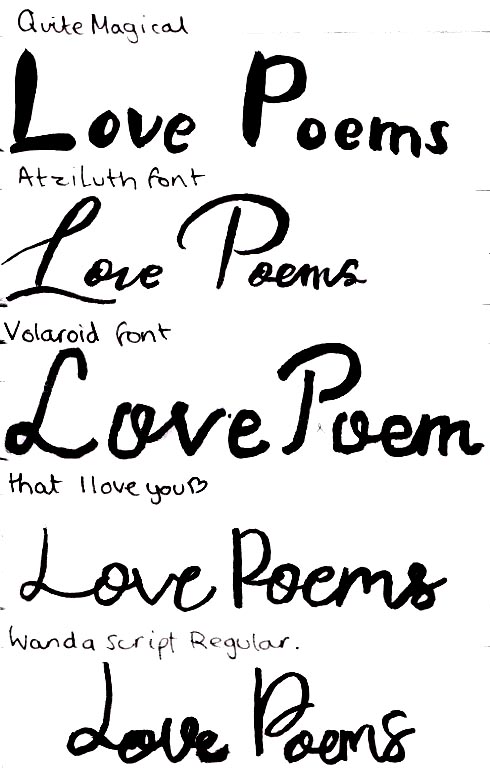 Quite Magical
Love Poems
Atziluth font
Love Poems
Volaroid font
Love Poem
that I love you♡
Love Poems
Wanda Script Regular.
Love Poems